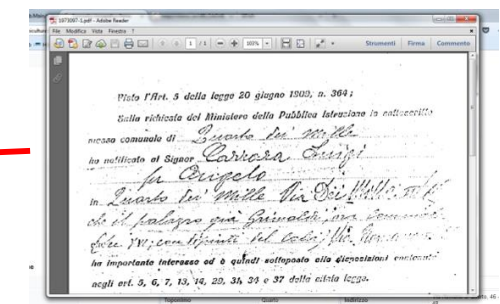 1973097-1.pdf - Adobe Reader
File Modifica Vista Finestra ?
1 / 1 101% Strumenti Firma Commento
Visto l'Art. 5 della legge 20 giugno 1909, n. 364;
Sulla richiesta del Ministero della Pubblica Istruzione io sottoscritto
messo comunale di Quarto dei Mille
ho notificato al Signor Carrara Luigi
fu Angelo
in Quarto dei Mille Via Dei Mille
che il palazzo già Grimaldi, ora
con dipinti del Calvi, Via
ha importante interesse ed è quindi sottoposto alle disposizioni contenute
negli art. 5, 6, 7, 13, 14, 29, 31, 34 e 37 della citata legge.
Toponimo Quarto Indirizzo